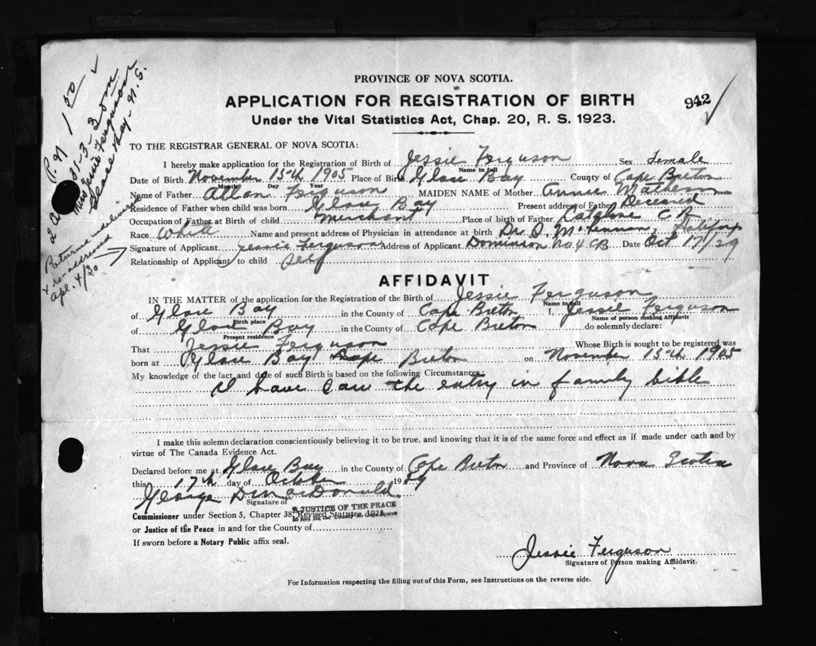 PROVINCE OF NOVA SCOTIA.
APPLICATION FOR REGISTRATION OF BIRTH
942
Under the Vital Statistics Act, Chap. 20, R. S. 1923.
TO THE REGISTRAR GENERAL OF NOVA SCOTIA:
I hereby make application for the Registration of Birth of Jessie Ferguson Sex Female
Name in full
Date of Birth November 15th 1905 Place of Birth Glace Bay County of Cape Breton
Month Day Year
Name of Father Allan Ferguson MAIDEN NAME of Mother Annie Matheson
Residence of Father when child was born Glace Bay Present address of Father Deceased
Occupation of Father at Birth of child Merchant Place of birth of Father C B
Race White Name and present address of Physician in attendance at birth Dr. D. McLennon, Halifax
Signature of Applicant Jessie Ferguson Address of Applicant Dominion No. 4 CB Date Oct 17/29
Relationship of Applicant to child Self
AFFIDAVIT
IN THE MATTER of the application for the Registration of the Birth of Jessie Ferguson
Name in full
of Glace Bay in the County of Cape Breton I, Jessie Ferguson
Birth place Name of person making Affidavit
of Glace Bay in the County of Cape Breton do solemnly declare:
Present residence
That Jessie Ferguson Whose Birth is sought to be registered was
born at Glace Bay Cape Breton on November 15th 1905
My knowledge of the fact and date of such Birth is based on the following Circumstances
I have saw the entry in family bible
I make this solemn declaration conscientiously believing it to be true, and knowing that it is of the same force and effect as if made under oath and by
virtue of The Canada Evidence Act.
Declared before me at Glace Bay in the County of Cape Breton and Province of Nova Scotia
this 17th day of October 1929
George D MacDonald
Signature of
A JUSTICE OF THE PEACE
Commissioner under Section 5, Chapter 38, Revised Statutes, 1923,
or Justice of the Peace in and for the County of
If sworn before a Notary Public affix seal.
Jessie Ferguson
Signature of Person making Affidavit.
For Information respecting the filling out of this Form, see Instructions on the reverse side.
Miss Jessie Ferguson
Glace Bay - N. S.
Apl. 4/30